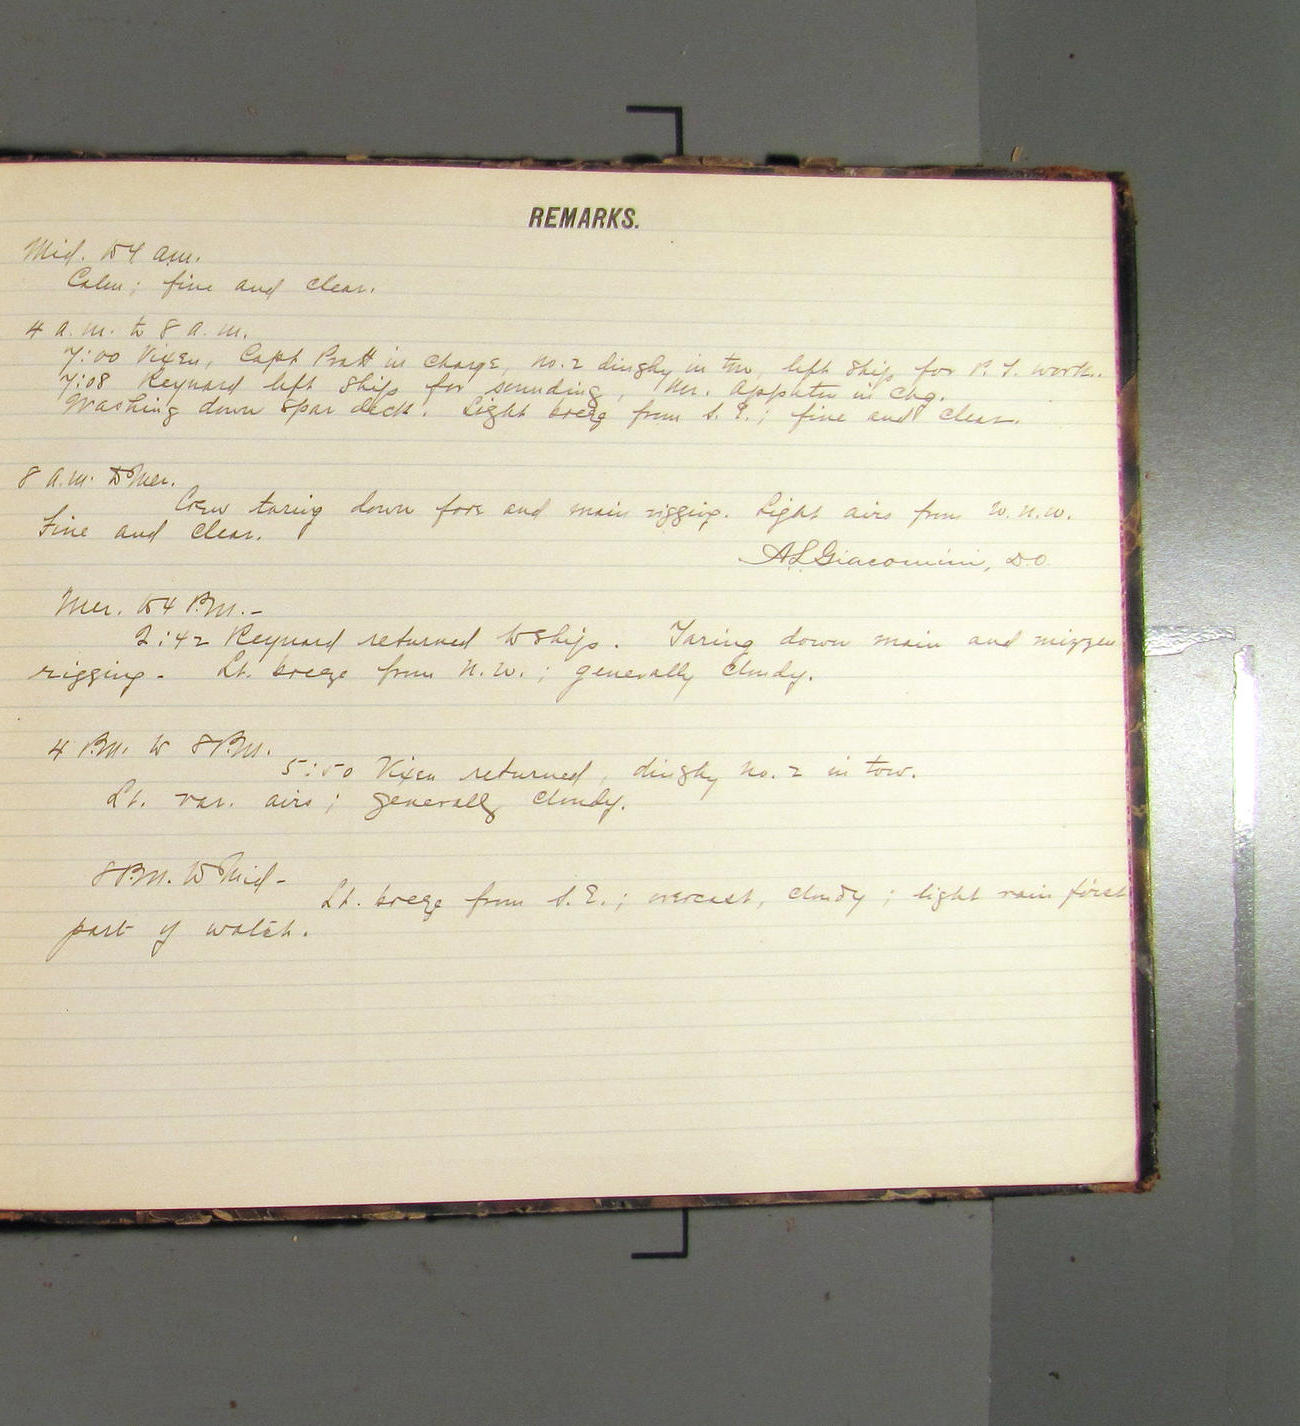 REMARKS.
Mid. to 4 a.m.
Calm; fine and clear.
4 a.m. to 8 a.m.
7:00 Vixen, Capt Pratt in charge, no. 2 dinghy in tow, left ship for P. S. work.
7:08 Reynard left ship for sounding, Mr. in chg.
Washing down spar deck. Light breeze from S. E.; fine and clear.
8 a.m. to Mer.
Crew taring down fore and main rigging. Light airs from W.N.W.
Fine and clear.
A L Giacomini, D.O.
Mer. to 4 P.M.-
2:42 Reynard returned to ship. Taring down main and mizzen
rigging. Lt. breeze from N.W.; generally cloudy.
4 P.M. to 8 P.M.
5:50 Vixen returned, dinghy no. 2 in tow.
Lt. var. airs; generally cloudy.
8 P.M. to Mid-
Lt. breeze from S.E.; overcast, cloudy; light rain first
part of watch.